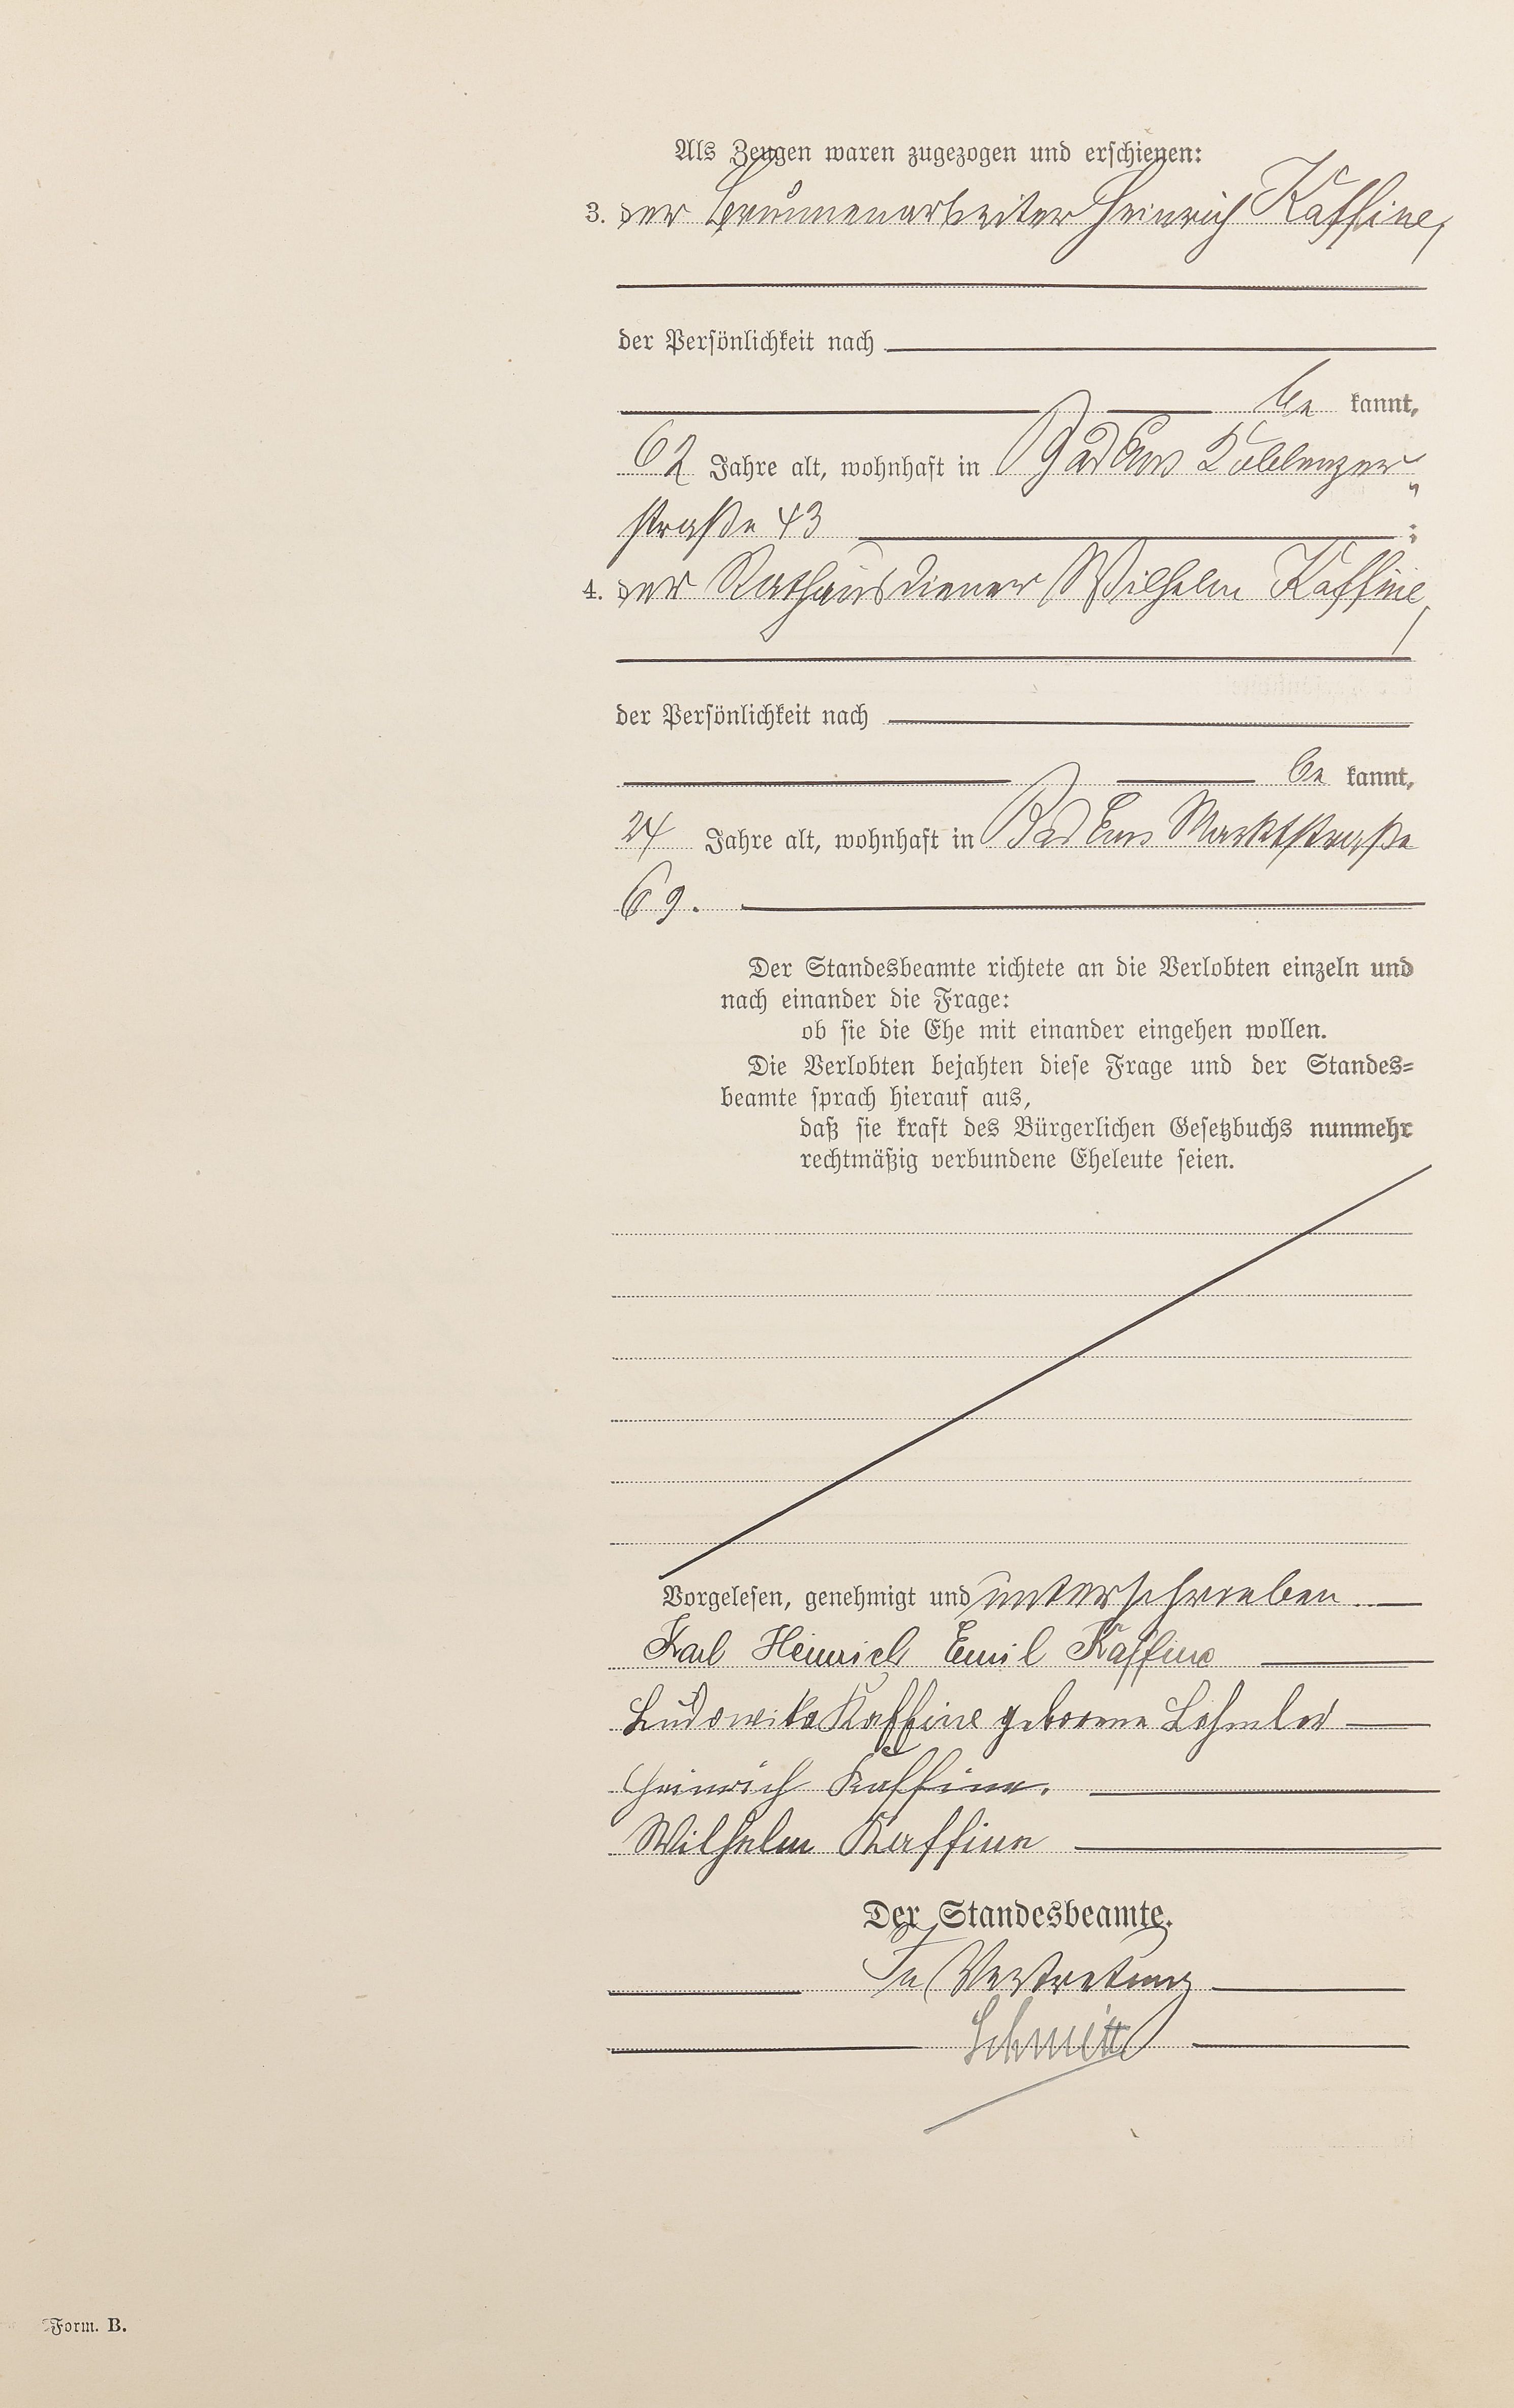 Als Zeugen waren zugezogen und erschienen:
3. der Brunnenarbeiter Heinrich Kaffine,
der Persönlichkeit nach
be kannt,
62 Jahre alt, wohnhaft in Bad Ems Koblenzer-
straße 43 ;
4. der Rathausdiener Wilhelm Kaffine,
der Persönlichkeit nach
be kannt,
24 Jahre alt, wohnhaft in Bad Ems Marktstraße
69.
Der Standesbeamte richtete an die Verlobten einzeln und
nach einander die Frage:
ob sie die Ehe mit einander eingehen wollen.
Die Verlobten bejahten diese Frage und der Standes-
beamte sprach hierauf aus,
daß sie kraft des Bürgerlichen Gesetzbuchs nunmehr
rechtmäßig verbundene Eheleute seien.
Vorgelesen, genehmigt und unterschrieben
Karl Heinrich Emil Kaffine
Ludowika Kaffine geborene
Heinrich Kaffine.
Wilhelm Kaffine
Der Standesbeamte.
In Vertretung
Schmitt
Form. B.